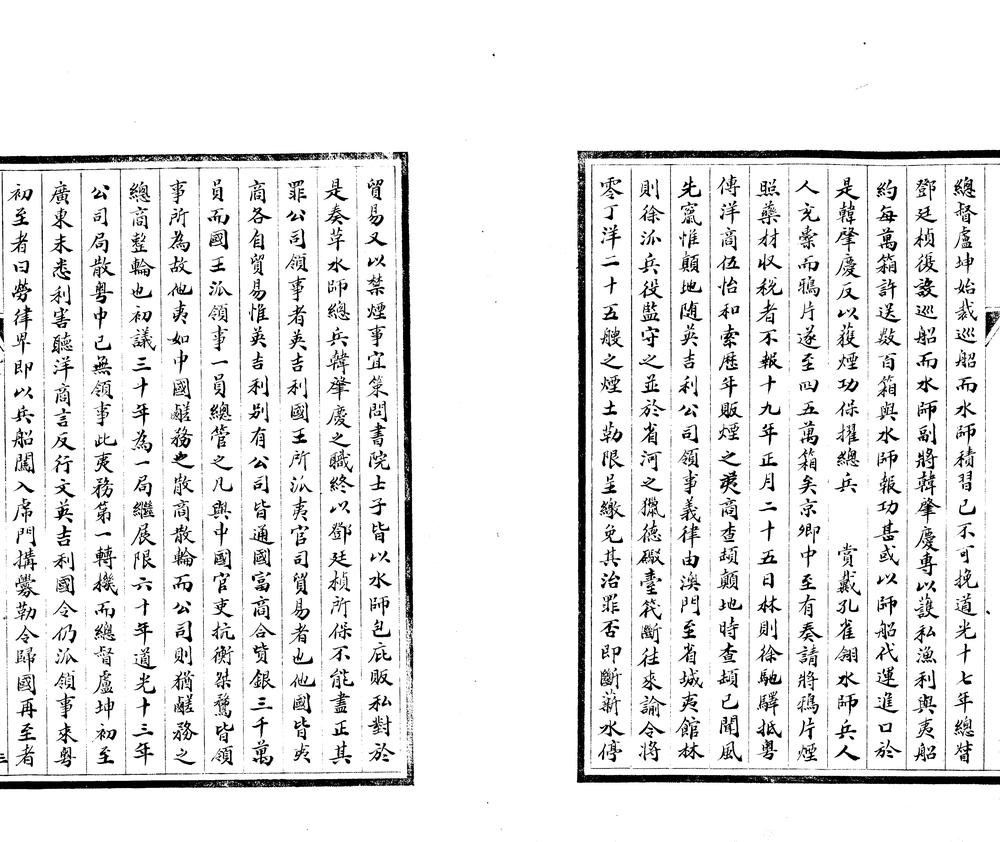 總督盧坤始裁巡船而水師積習已不可挽道光十七年總督
鄧廷楨復設巡船而水師副將韓肇慶專以護私漁利與夷船
約每萬箱許送数百箱與水師報功甚或以師船代運進口於
是韓肇慶反以獲煙功保擢總兵 賞戴孔雀翎水師兵人
人充橐而鴉片遂至四五萬箱矣京卿中至有奏請將鴉片煙
照藥材收税者不報十九年正月二十五日林則徐馳驛抵粤
傳洋商伍怡和索歷年販煙之夷商查頓顛地時查頓已聞風
先竄惟顛地随英吉利公司領事義律由澳門至省城夷館林
則徐派兵役監守之並於省河之獵德礮臺筏斷往來諭令將
零丁洋二十五艘之煙土勒限呈繳免其治罪否即斷薪水停
貿易又以禁煙事宜策問書院士子皆以水師包庇販私對於
是奏革水師總兵韓肇慶之職終以鄧廷楨所保不能盡正其
罪公司領事者英吉利國王所派夷官司貿易者也他國皆夷
商各自貿易惟英吉利别有公司皆通國富商合貲銀三千萬
員而國王派領事一員總管之凡與中國官吏抗衡桀驁皆領
事所為故他夷如中國鹺務之散商散輪而公司則猶鹺務之
總商整輪也初議三十年為一局繼展限六十年道光十三年
公司局散粤中已無領事此夷務第一轉機而總督盧坤初至
廣東未悉利害聽洋商言反行文英吉利國令仍派領事來粤
初至者曰勞律卑即以兵船闖入虎門搆釁勒令歸國再至者
三